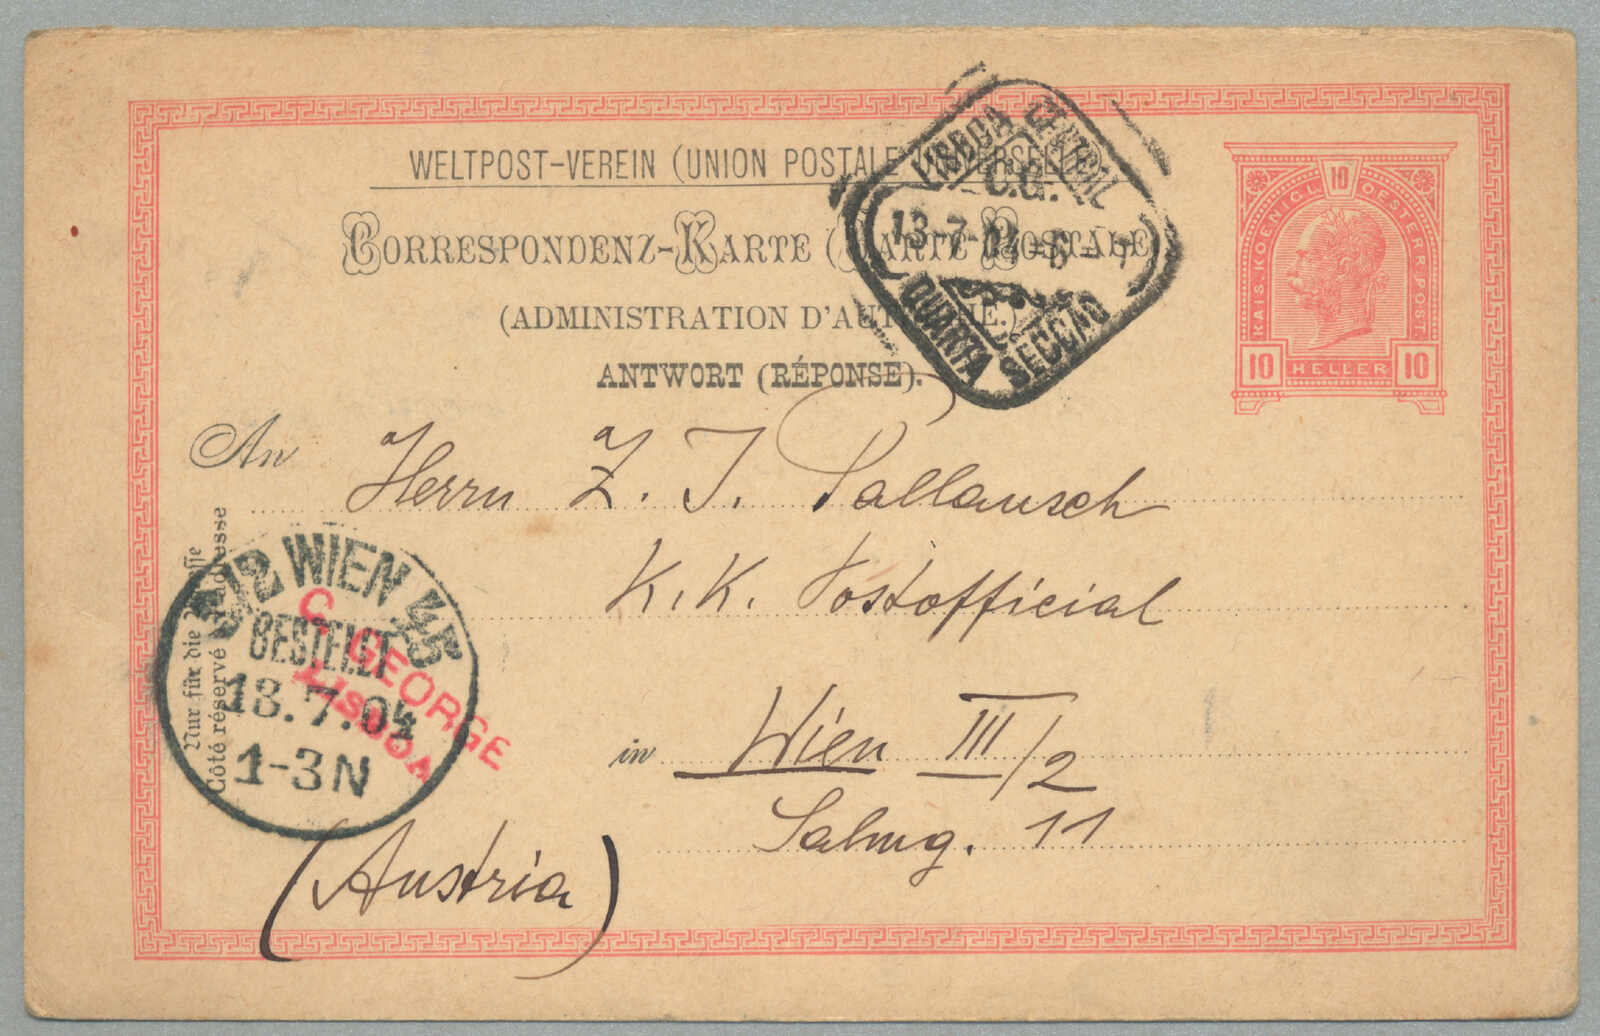 WELTPOST-VEREIN (UNION POSTALE UNIVERSELLE)
CORRESPONDENZ-KARTE (CARTE POSTALE)
(ADMINISTRATION D'AUTRICHE.)
ANTWORT (RÉPONSE).
LISBOA CENTRAL
C.G.
13-7-04-6-
QUARTA SECCAO
10
KAIS. KOENIGL. OESTERR. POST
10 HELLER 10
An Herrn Z. J. Pallausch
K. K. Postofficial
in Wien III/2
Salmg. 11
(Austria)
Nur für die Adresse
Côté réservé à l'adresse
3/2 WIEN 45
BESTELLT
18.7.04
1-3N
C. GEORGE
LISBOA